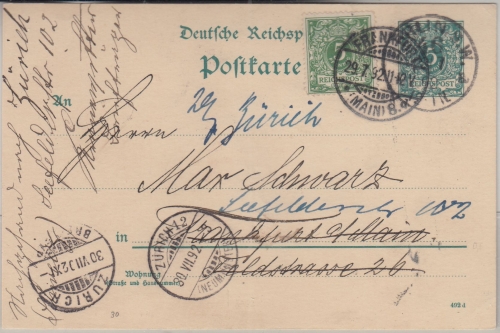 Deutsche Reichsp
Postkarte
REICHSPOST
REICHSPOST
FRANKFURT
29.7.92
(MAIN) 8.
BERLIN S.W
An
Herrn
Zürich
Max Schwarz
Seefeldstr 102
in Frankfurt a/Main
Wohnung
(Straße und Hausnummer)
Feldstrasse 26
ZÜRICH 12
30.VII.92
(NEUM
ZÜRICH
30 VII 92
BRF.
Nachgesand nach Zürich
Seefeldstr 102
30
492 i